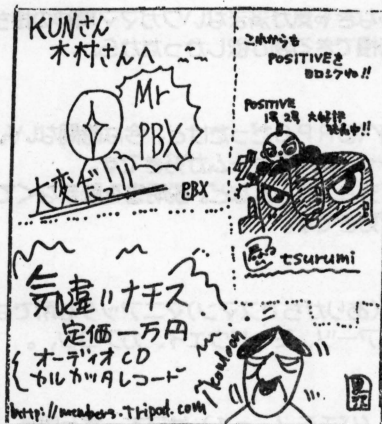 KUNさん
木村さんへ
Mr
PBX
大変だッ!!
PBX
これからも
POSITIVEを
ヨロシクね!!
POSITIVE
1号,2号 大好評
発売中!!
tsurumi
気違いナチス
定価一万円
オーディオCD
カルカッタレコード
http://members.tripod.com
Kondoom